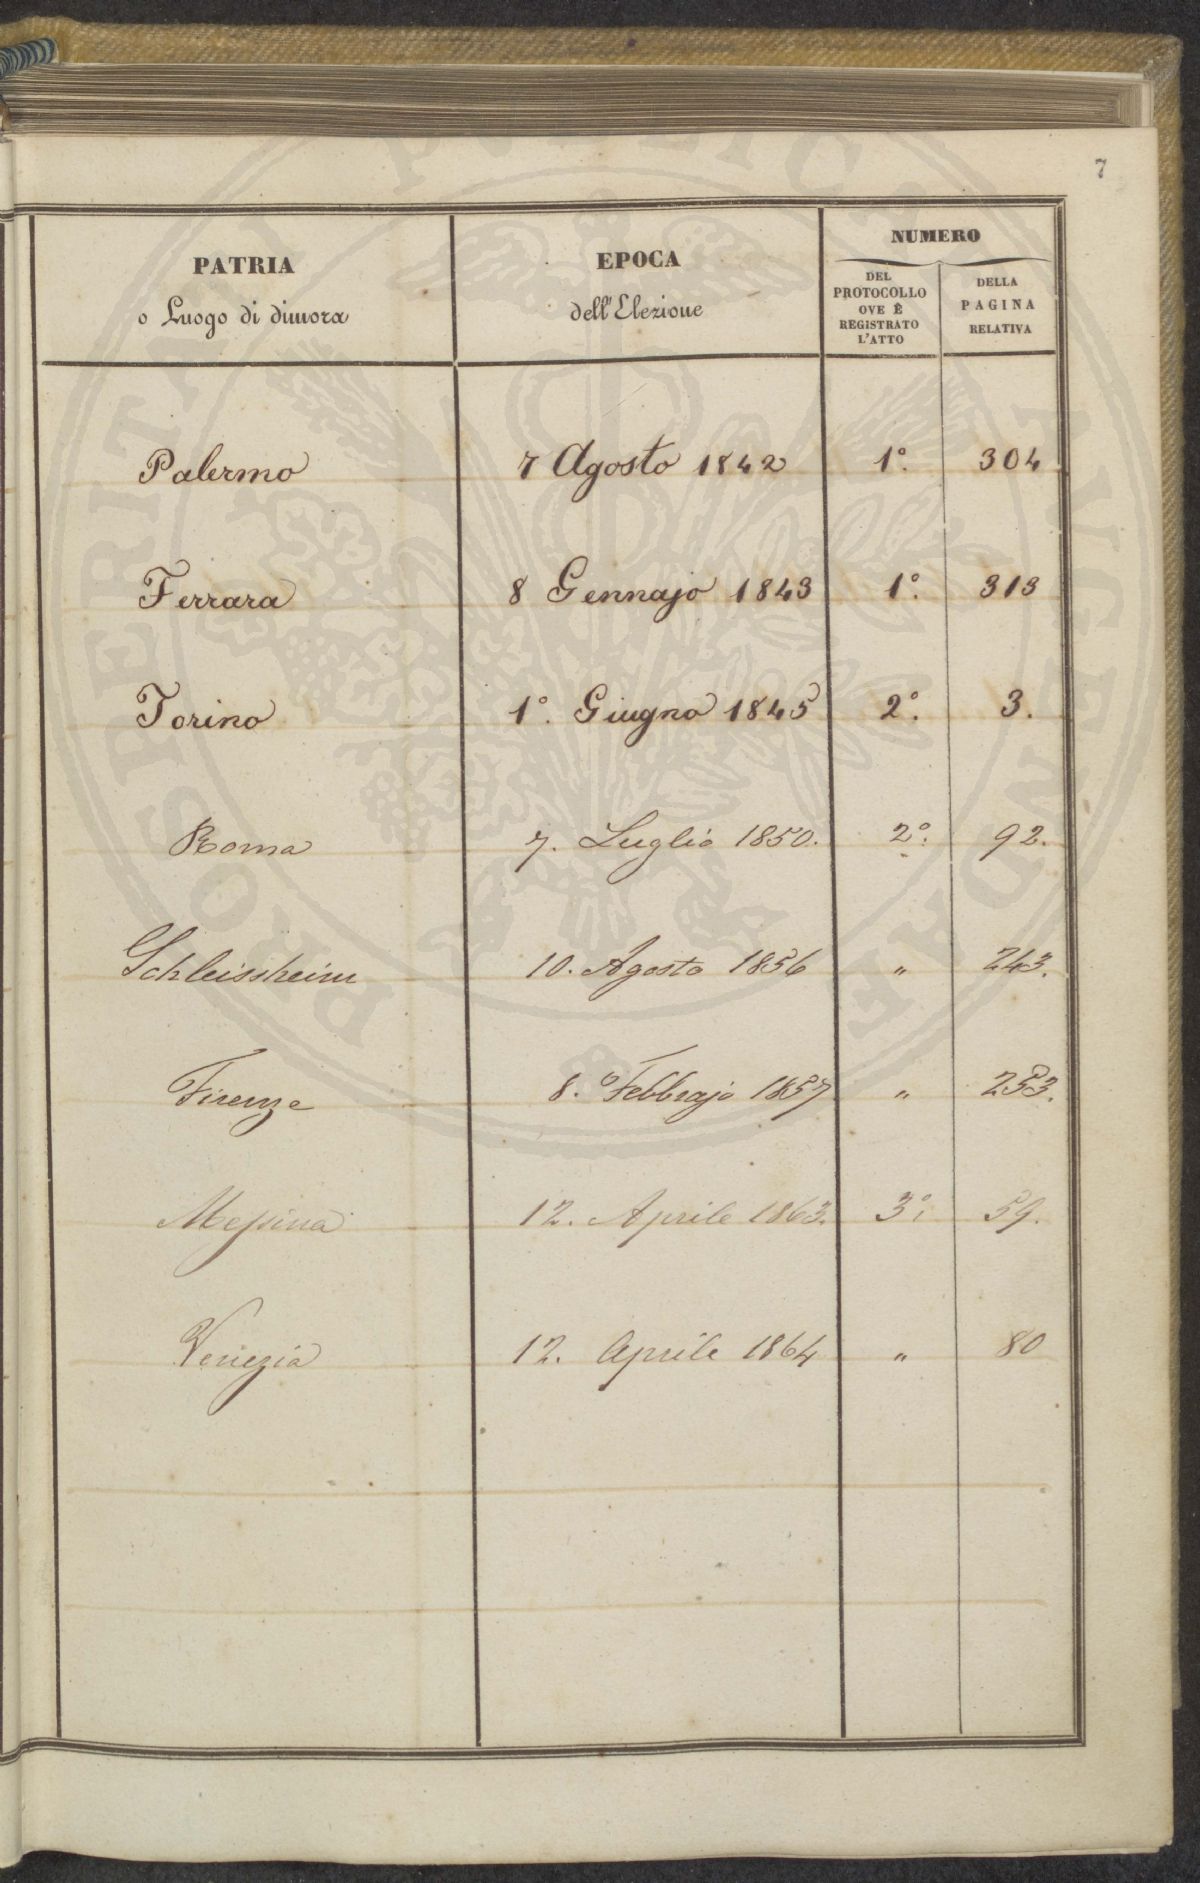 7
PATRIA
o Luogo di dimora
EPOCA
dell'Elezione
NUMERO
DEL
PROTOCOLLO
OVE È
REGISTRATO
L'ATTO
DELLA
PAGINA
RELATIVA
Palermo 7 Agosto 1842 1º. 304
Ferrara 8 Gennajo 1843 1º. 313
Torino 1º. Giugno 1845 2º. 3.
Roma 7. Luglio 1850. 2º. 92.
Schleissheim 10. Agosto 1856 " 243.
Firenze 8. Febbrajo 1857 " 253.
Messina 12. Aprile 1863. 3º. 59.
Venezia 12. Aprile 1864 " 80
PROSPERITATI PUBLICAE AUGENDAE